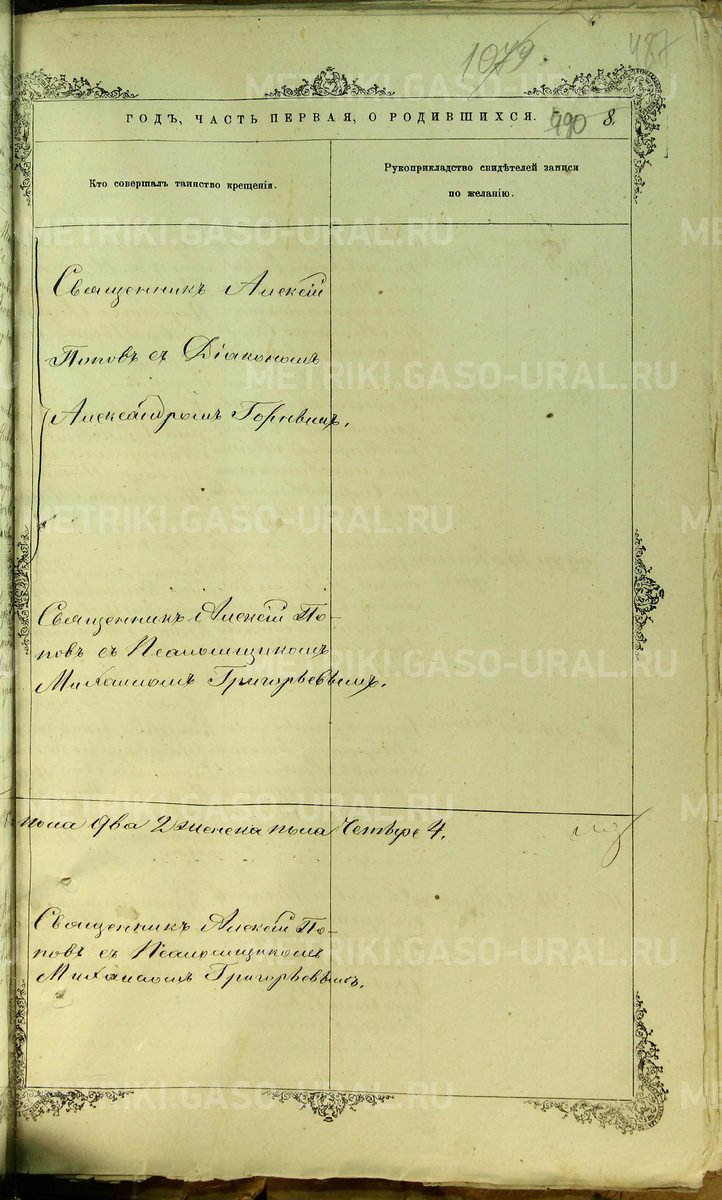 1079
487
ГОДЪ, ЧАСТЬ ПЕРВАЯ, О РОДИВШИХСЯ.
490 8.
Кто совершалъ таинство крещенія.
Рукоприкладство свидѣтелей записи
по желанію.
Священникъ Алексій
Поповъ съ Діакономъ
Александромъ
Священникъ Алексій По-
повъ съ Псаломщикомъ
Михаиломъ Григорьевымъ.
пола два 2 женска пола Четыре 4.
Священникъ Алексій По-
повъ съ Псаломщикомъ
Михаиломъ Григорьевымъ.
METRIKI.GASO-URAL.RU